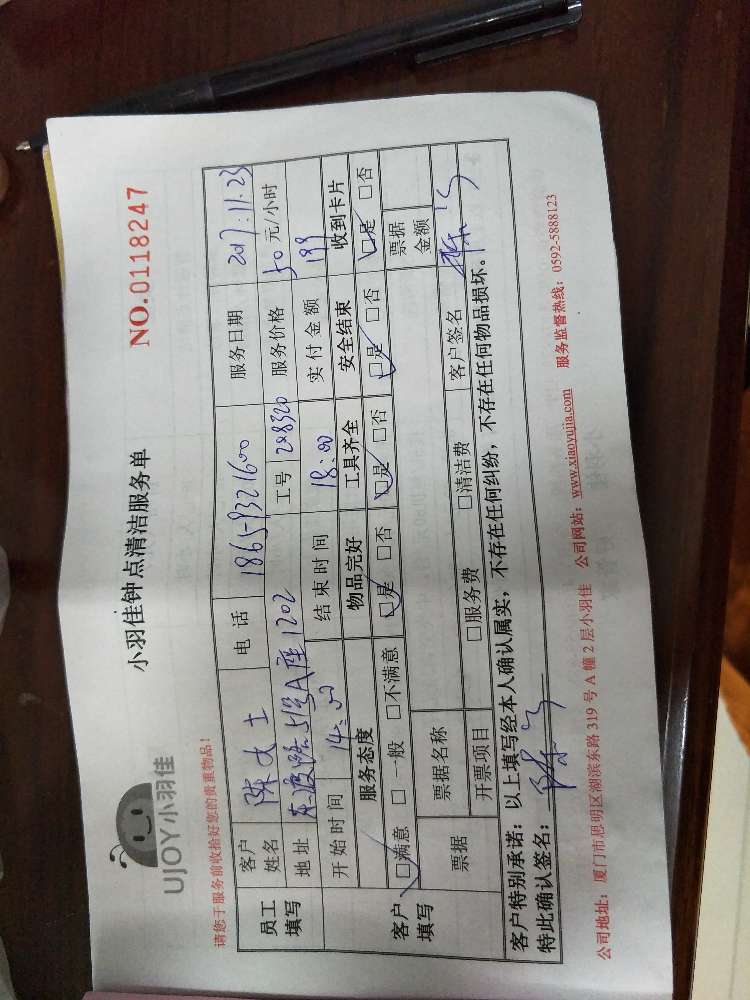 小羽佳钟点清洁服务单
UJOY小羽佳
NO.0118247
请您于服务前收拾好您的贵重物品!
员工填写 客户姓名 陈女士 电话 1865-9321600 服务日期 2017.11.23
地址 东渡路51号A座1202 工号 208320 服务价格 50元/小时
开始时间 14:00 结束时间 18:00 实付金额 199
客户填写 服务态度 物品完好 工具齐全 安全结束 收到卡片
□满意 □一般 □不满意 □是 □否 □是 □否 □是 □否 □是 □否
票据 票据名称 票据金额
开票项目 □服务费 □清洁费 客户签名
客户特别承诺:以上填写经本人确认属实,不存在任何纠纷,不存在任何物品损坏。
特此确认签名:
公司地址:厦门市思明区湖滨东路319号A幢2层小羽佳 公司网站:www.xiaoyujia.com 服务监督热线:0592-5888123